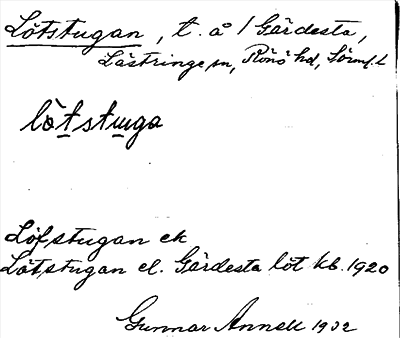 Lötstugan, t. å / Gärdesta,
Lästringe sn, Rönö hd, Sörml. L
lò̀tstu̲ga
Löfstugan ek
Lötstugan el. Gärdesta löt kb. 1920
Gunnar Annell 1932